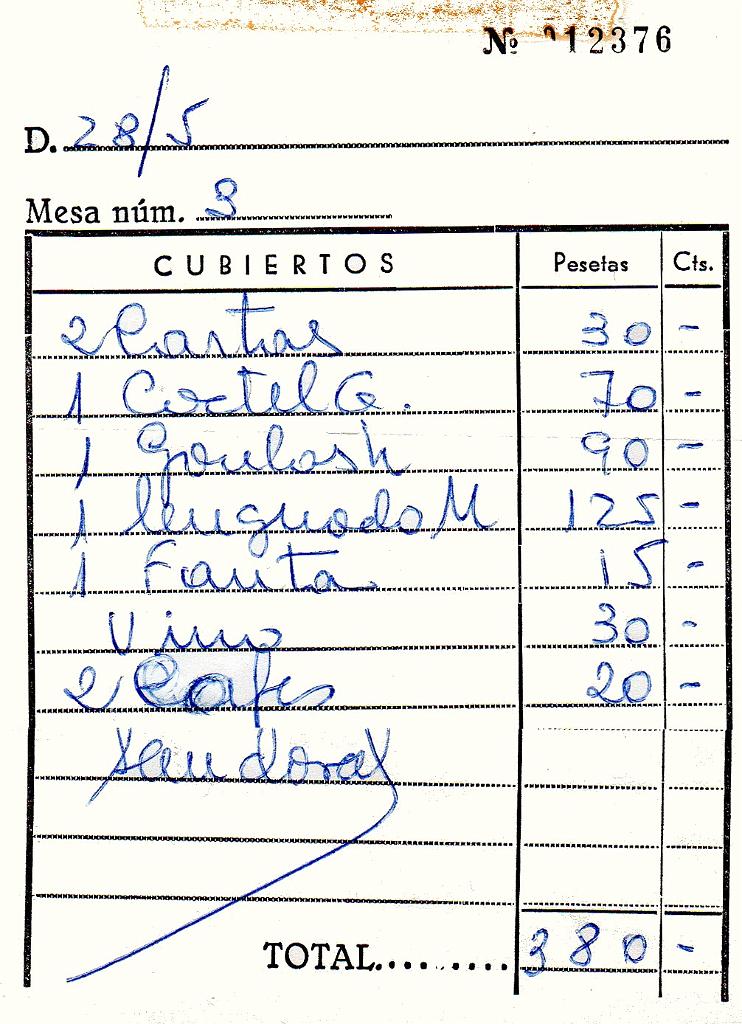 Nº 012376
D. 28/5
Mesa núm. 3
CUBIERTOS Pesetas Cts.
2 Cartas 30 -
1 Coctel G. 70 -
1 Goulash 90 -
1 lenguado M 125 -
1 Fanta 15 -
Vino 30 -
2 Cafes 20 -
TOTAL.......... 380 -